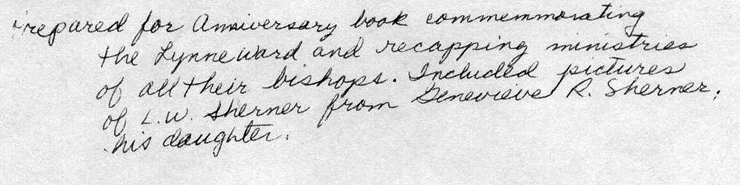 Prepared for Anniversary book commemmorating
the Lynne Ward and recapping ministries
of all their bishops. Included pictures
of L.W. Sherner from Genevieve R. Sherner,
his daughter.